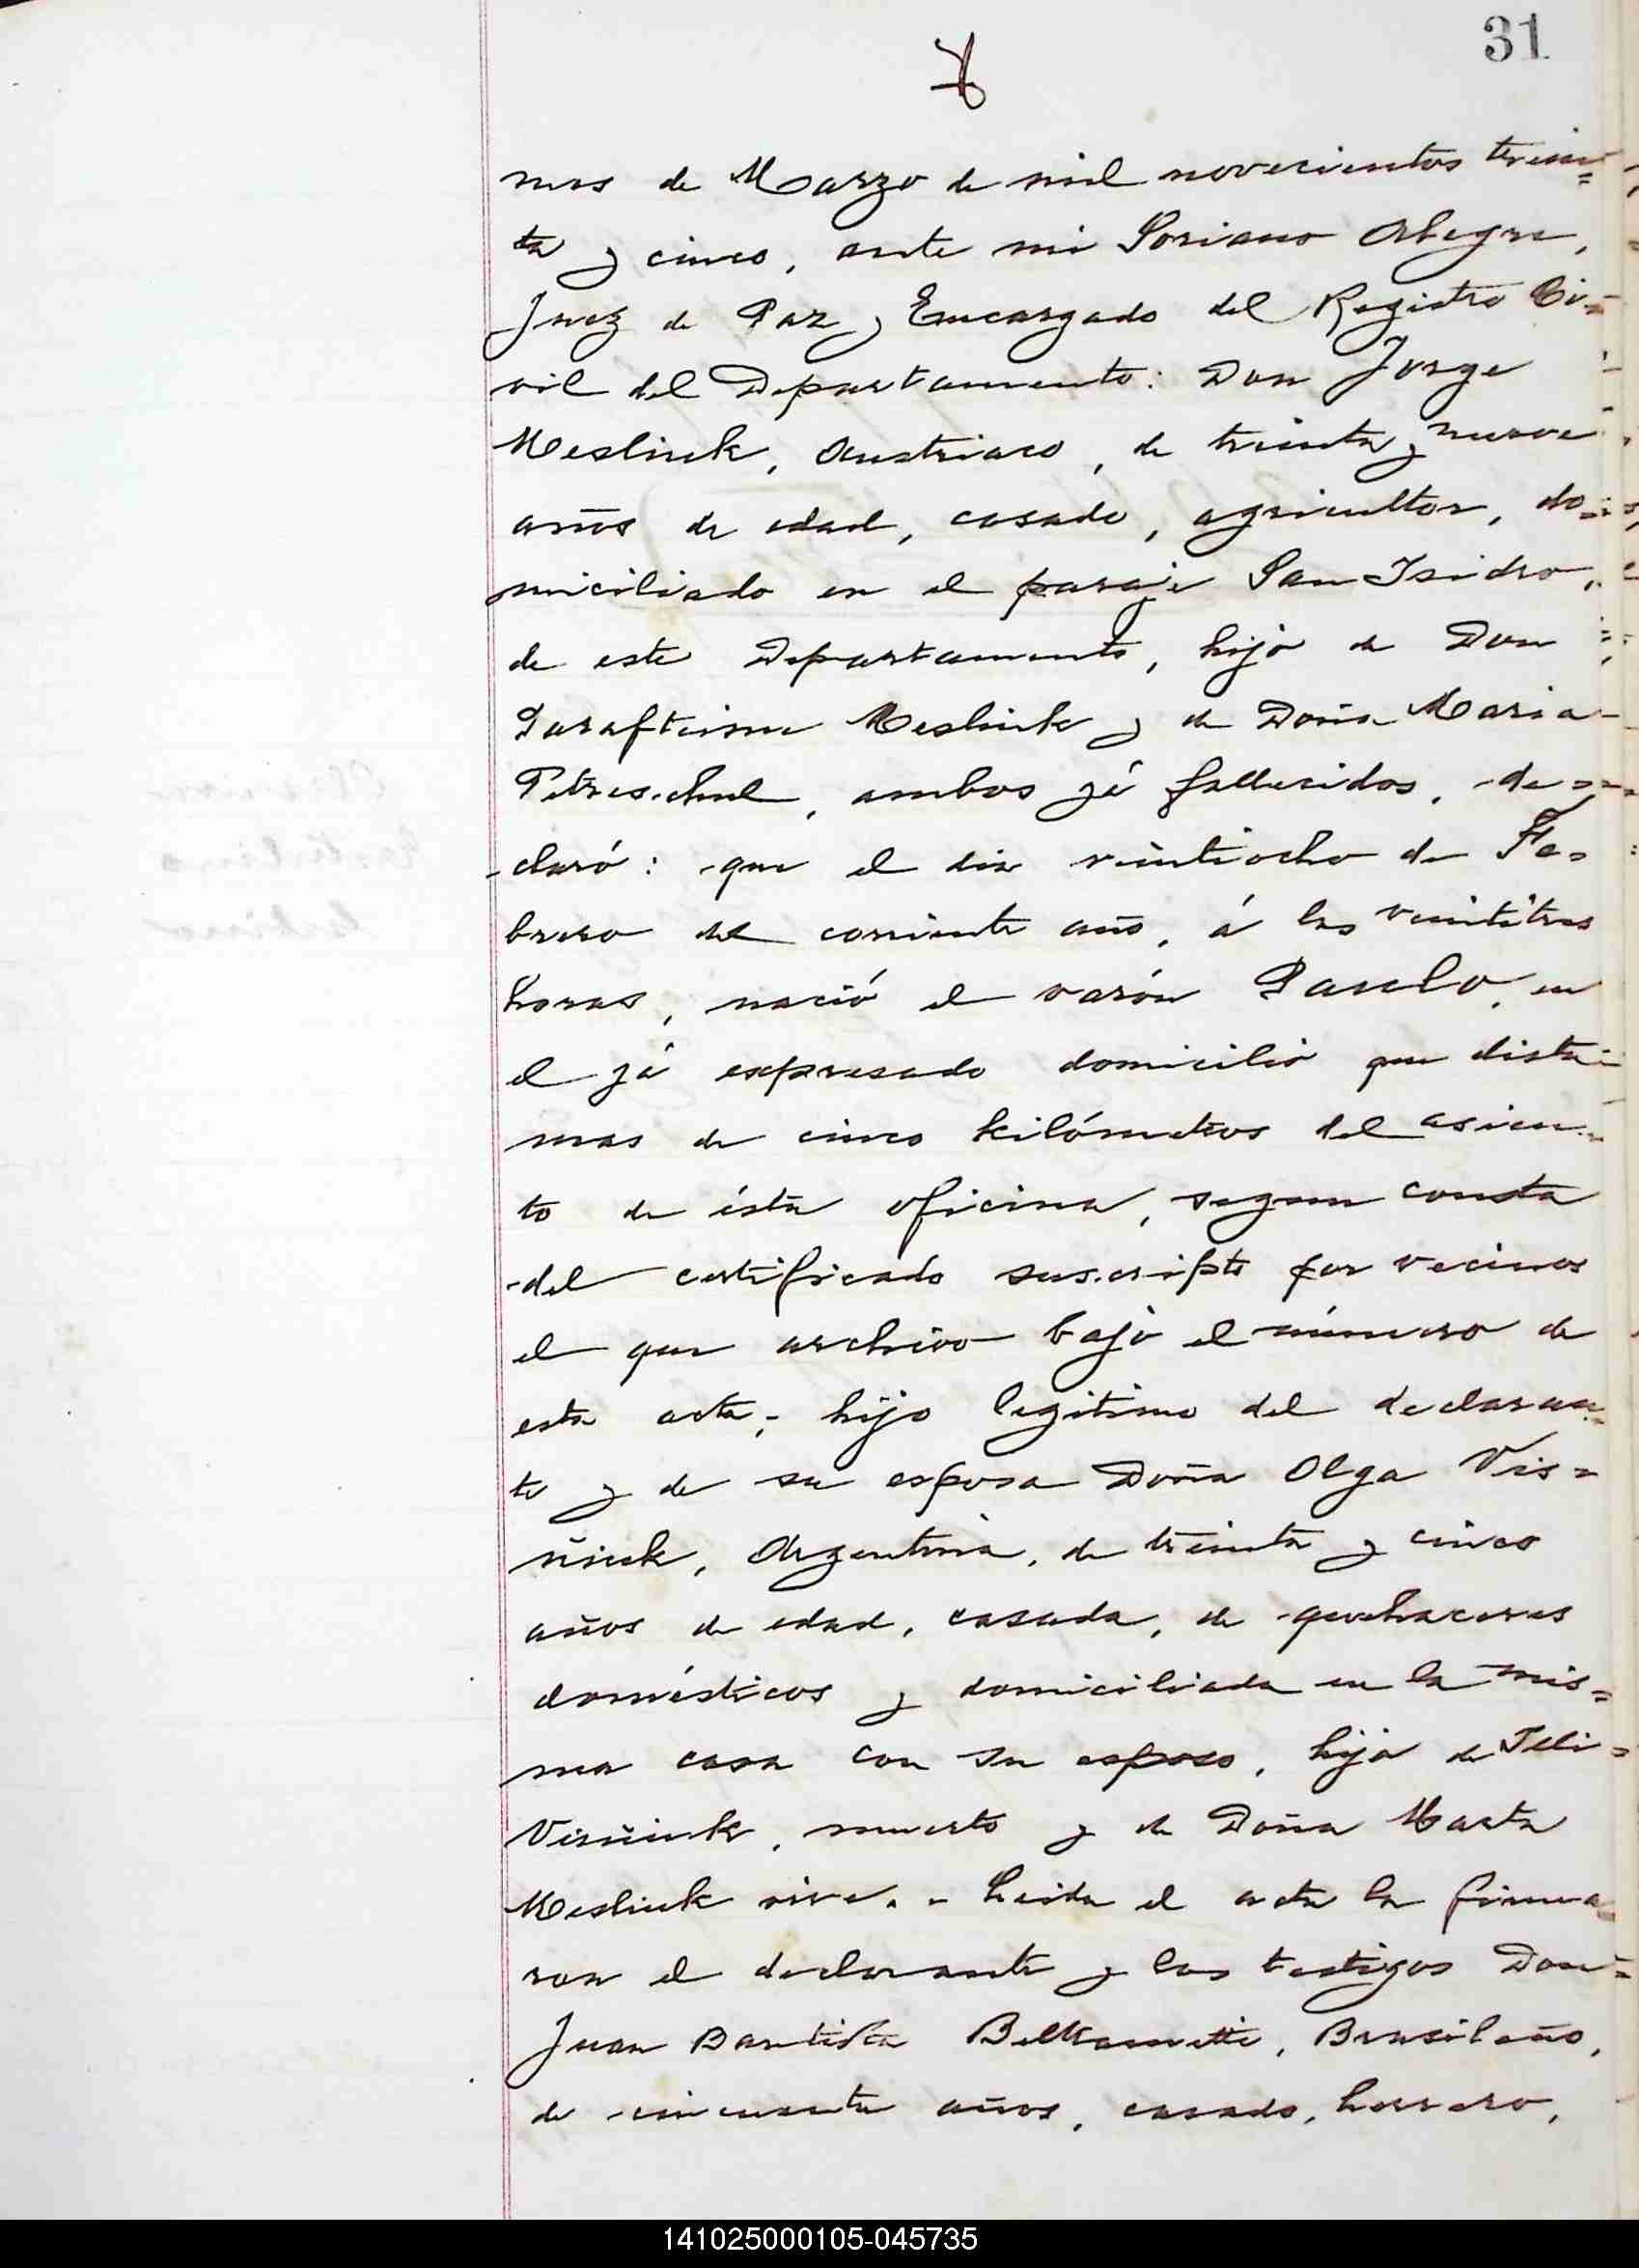 31
mes de Marzo de mil novecientos trein=
ta y cinco, ante mi Soriano Alegre,
Juez de Paz y Encargado del Registro Ci-
vil del Departamento: Don Jorge
Mesliuk, Austriaco, de treinta y nueve
años de edad, casado, agricultor, do=
miciliado en el paraje San Isidro,
de este Departamento, hijo de Don
Mesliuk y de Doña Maria
ambos yá fallecidos, de=
claró: que el dia veintiocho de Fe=
brero del corriente año, á las veintitres
horas, nació el varón Pauclo, en
el yá expresado domicilio que dista
mas de cinco kilómetros del asien-
to de ésta oficina, segun consta
del certificado suscripto por vecinos
el que archivo bajo el número de
esta acta, hijo legitimo del declaran=
te y de su esposa Doña Olga Vis=
ñiuk, Argentina, de treinta y cinco
años de edad, casada, de quehaceres
domésticos y domiciliada en la mis=
ma casa con su esposo, hija de
Visñiuk, muerto y de Doña Marta
Mesliuk vive. - Leida el acta la firma
ron el declarante y los testigos Don
Juan Bautista Beltrametti, Brasileño,
de cincuenta años, casado, herrero,
141025000105-045735